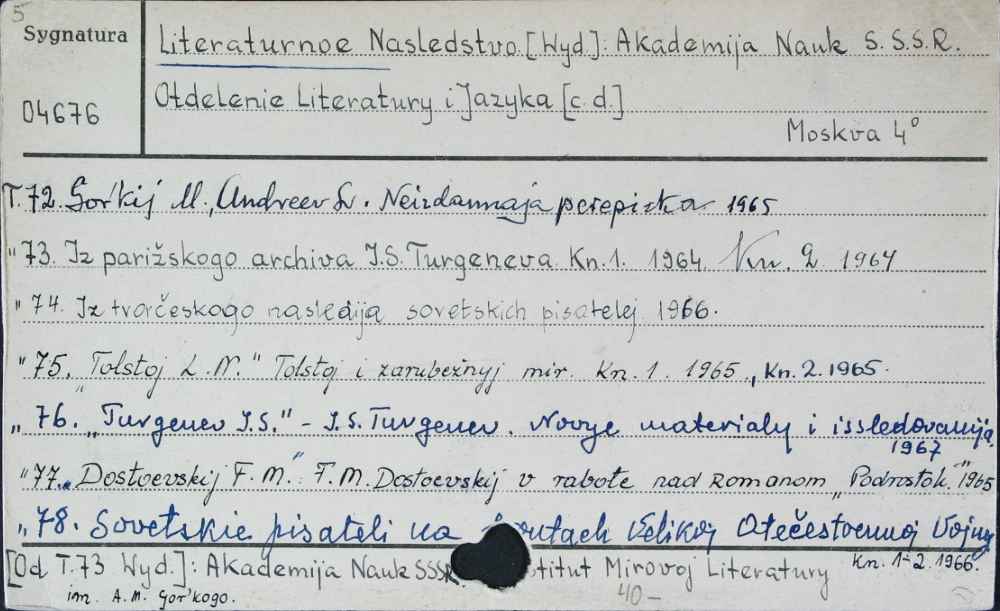 5
Sygnatura
04676
Literaturnoe Nasledstvo. [Wyd]: Akademija Nauk S.S.S.R.
Otdelenie Literatury i Jazyka [c.d.]
Moskva 4°
T.72. Gor'kij M., Andreev L. Neizdannaja perepiska 1965
"73. Iz parižskogo archiva I.S. Turgeneva. Kn.1. 1964. Kn. 2 1964
"74. Iz tvorčeskogo nasledija sovetskich pisatelej 1966.
"75. „Tolstoj L.N." Tolstoj i zarubežnyj mir. Kn.1. 1965., Kn. 2. 1965.
„76. „Turgenev I.S." - I.S. Turgenev. Novye materialy i issledovanija
1967
"77. „Dostoevskij F.M.": F.M. Dostoevskij v rabote nad romanom „Podrostok." 1965
„78. Sovetskie pisateli na Velikoj Otečestvennoj Vojny
Kn. 1-2. 1966.
[Od T.73 Wyd.]: Akademija Nauk SSSR. titut Mirovoj Literatury
im. A.M. Gor'kogo.
40-